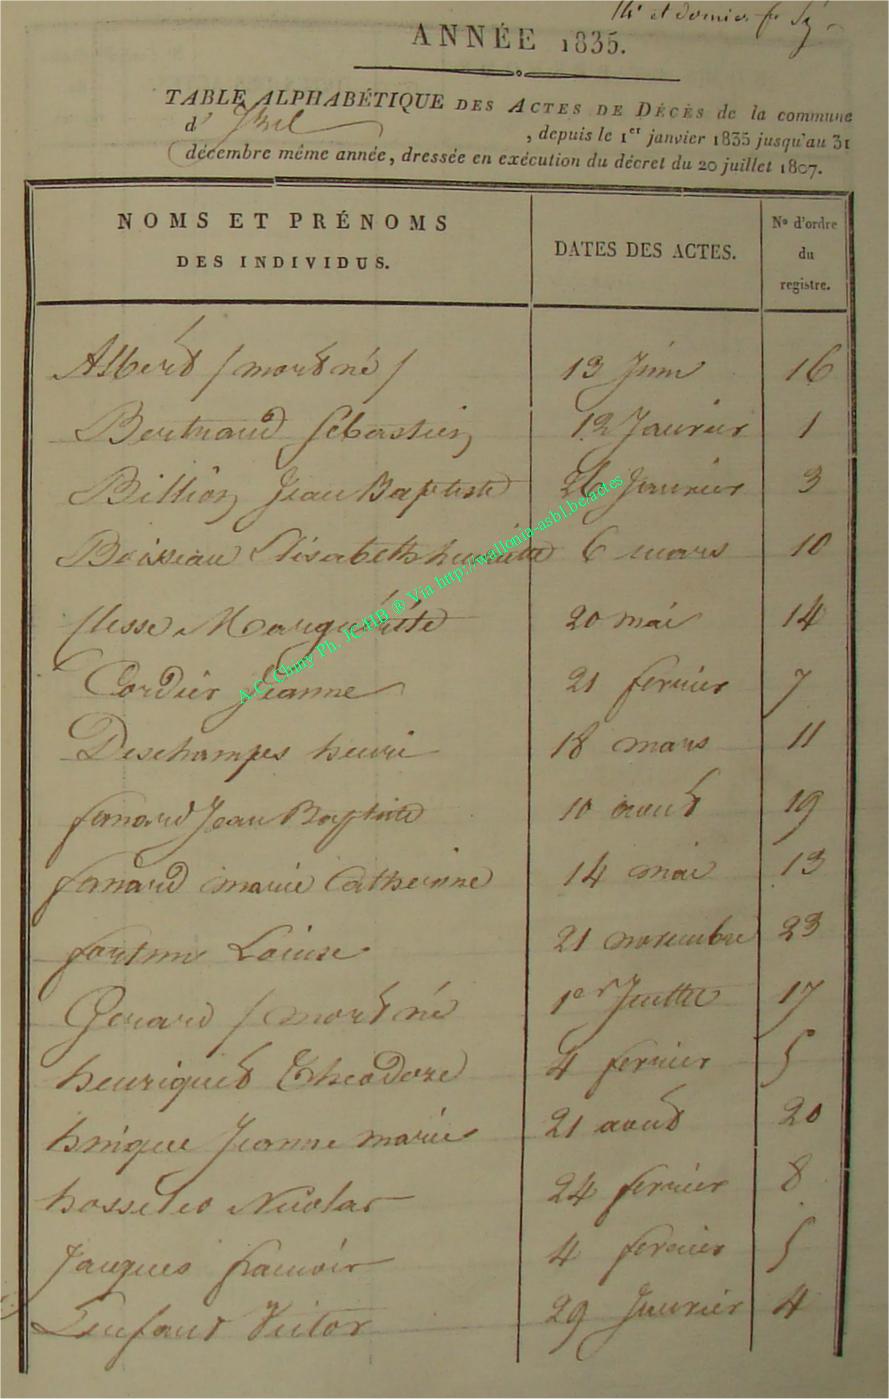 et dernier
ANNÉE 1835.
TABLE ALPHABÉTIQUE DES ACTES DE DÉCÈS de la commune
d' , depuis le 1er janvier 1835 jusqu'au 31
décembre même année, dressée en exécution du décret du 20 juillet 1807.
NOMS ET PRÉNOMS DES INDIVIDUS. DATES DES ACTES. No d'ordre du registre.
Albert / mort né / 13 Juin 16
Bertrand Sebastien 12 Janvier 1
Billion Jean Baptiste 26 Janvier 3
Boisseau Elisabeth henriette 6 mars 10
Clesse Marguerite 20 mai 14
Cordier Jeanne 21 fevrier 7
Deschamps henri 18 mars 11
fanard Jean Baptiste 10 aout 19
fanard marie Catherine 14 mai 13
Louise 21 novembre 23
Gerard / mort né 1er Juillet 17
henriquet Theodore 4 fevrier 5
hnique Jeanne marie 21 aout 20
Nicolas 24 fevrier 8
Jacques francois 4 fevrier 5
Lenfant Victor 29 Janvier 4
A.C. Chiny Ph. JCHB ® Via http://wallonia-asbl.be/actes